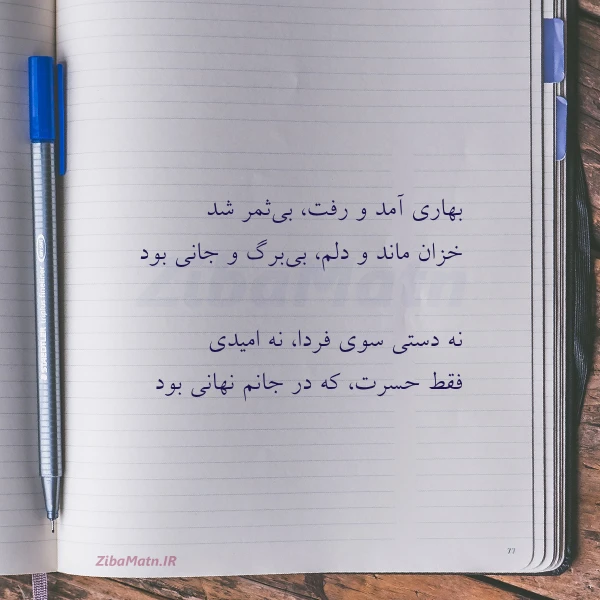 بهاری آمد و رفت، بی‌ثمر شد
خزان ماند و دلم، بی‌برگ و جانی بود
نه دستی سوی فردا، نه امیدی
فقط حسرت، که در جانم نهانی بود
77
ZibaMatn.IR